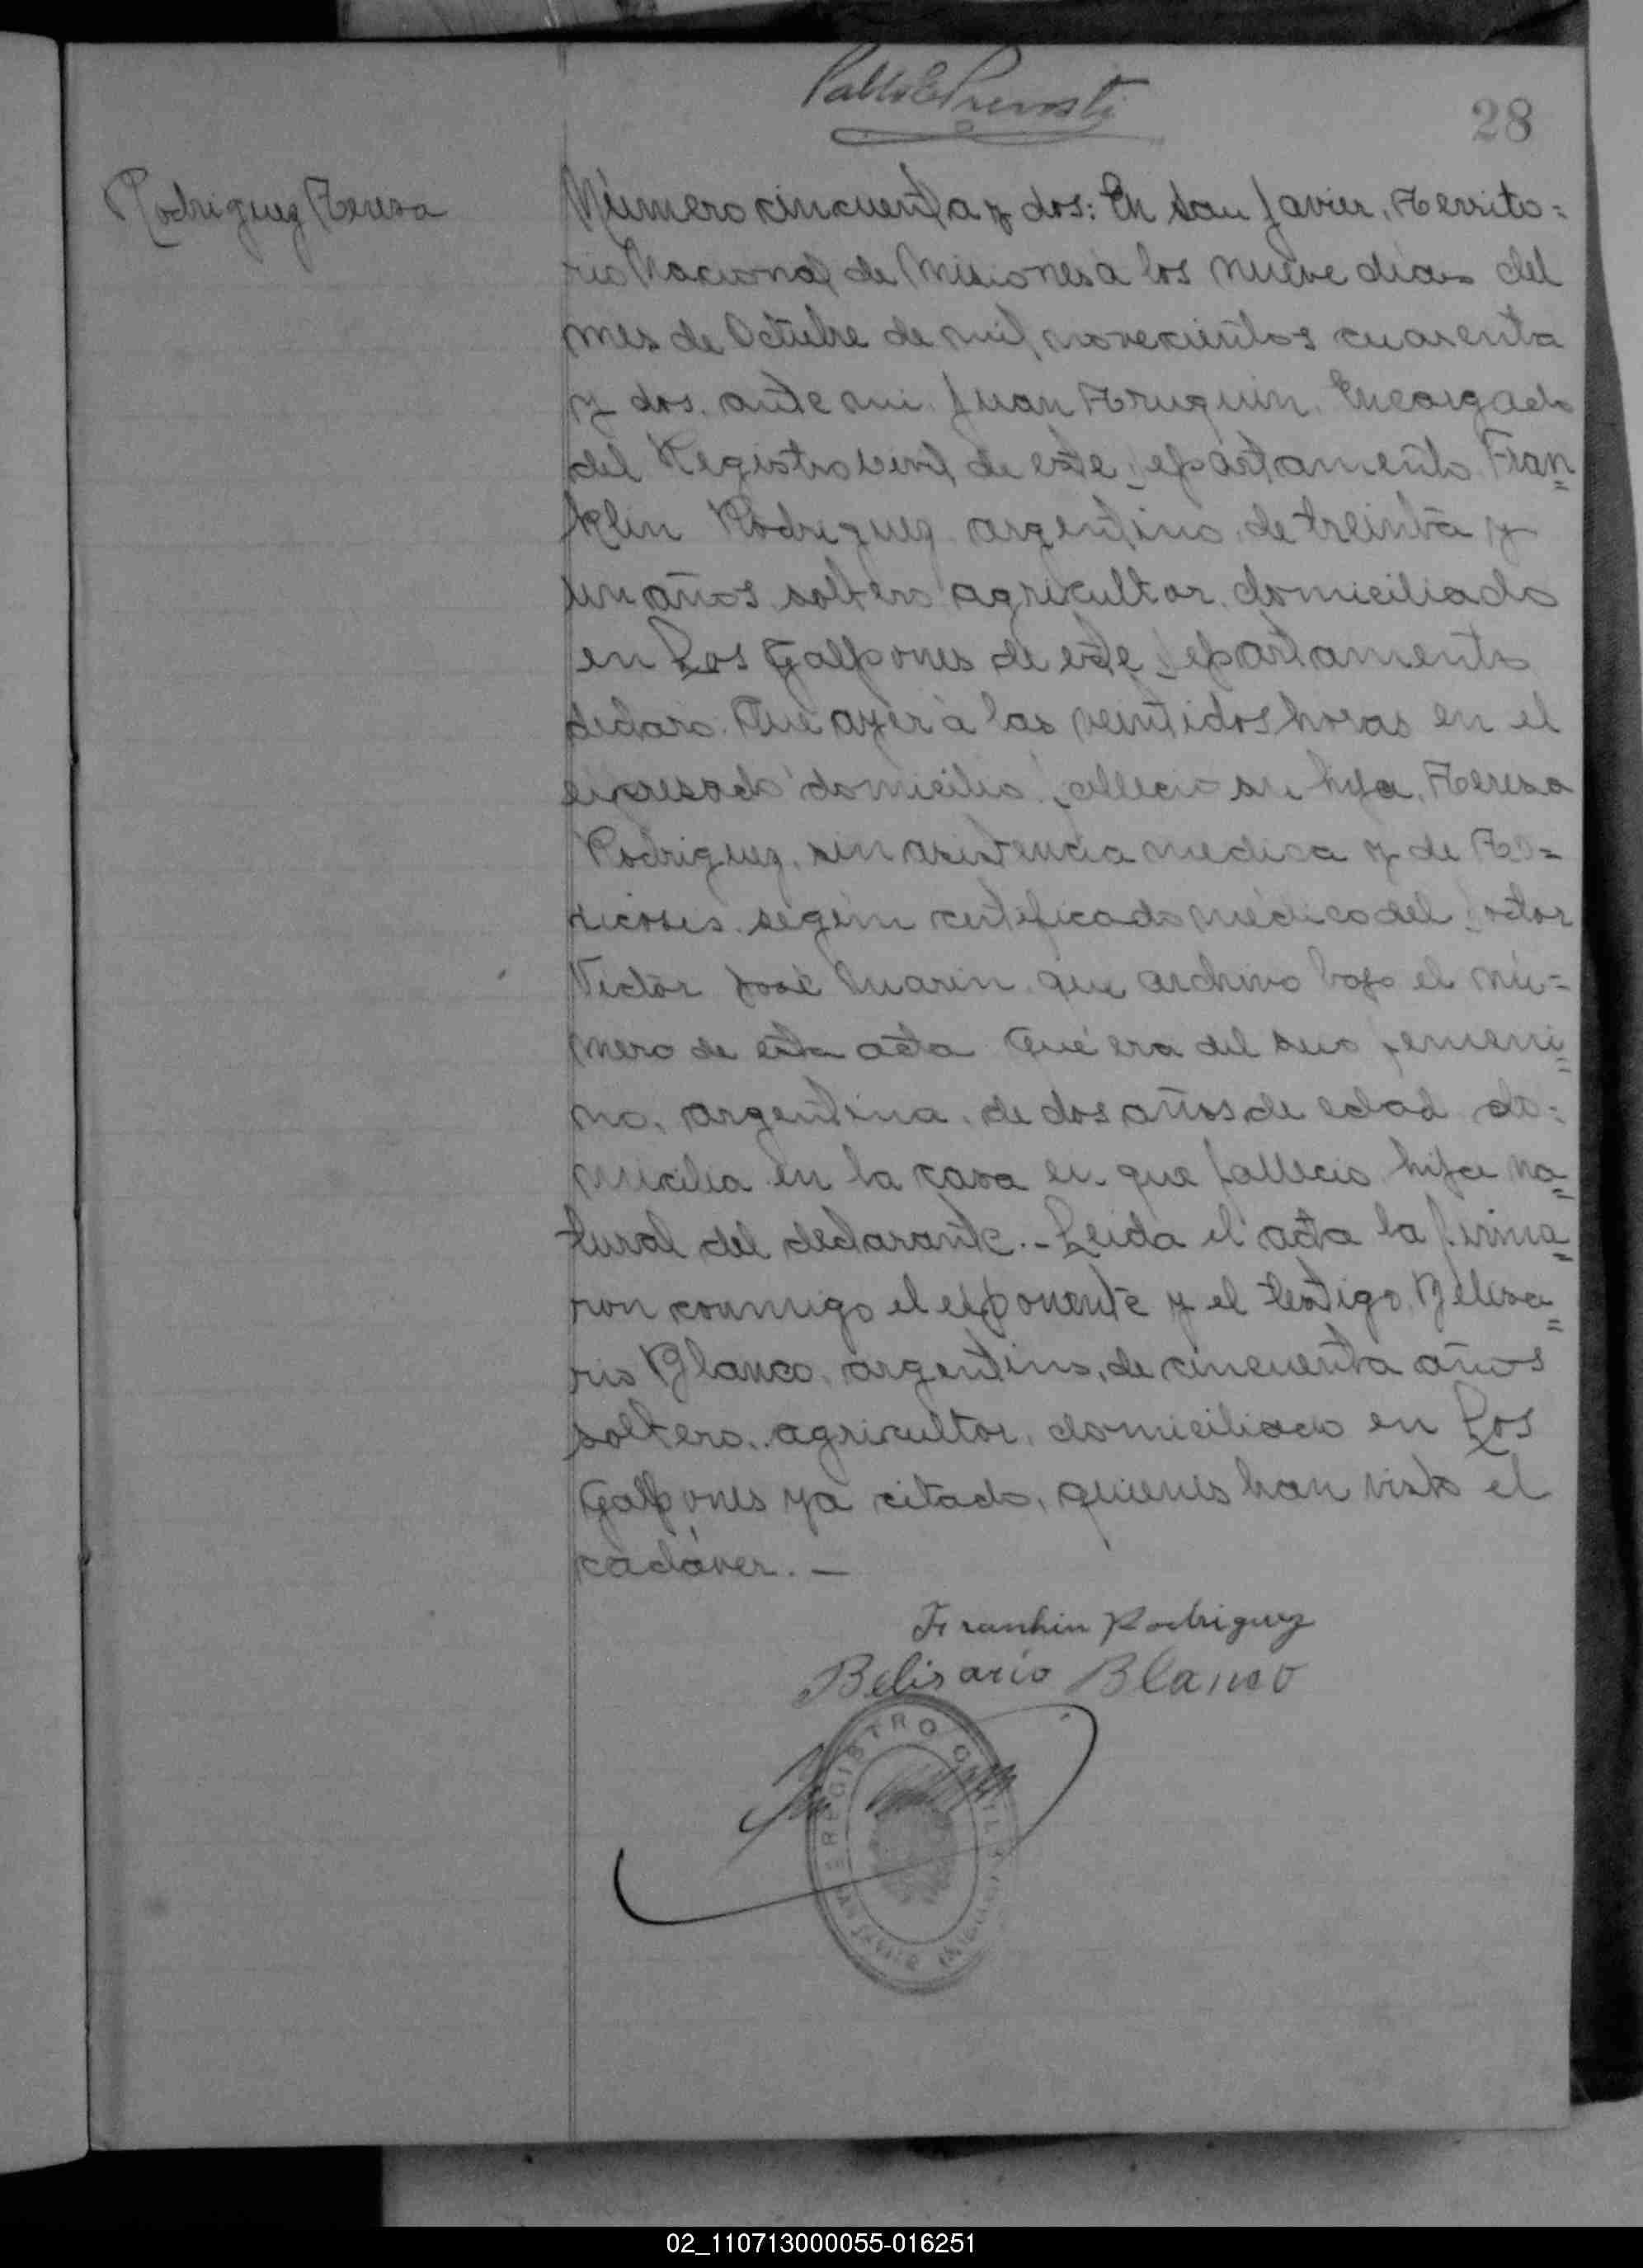 Pablo E Prevosti
28
Rodriguez Teresa
Número cincuenta y dos: En San Javier, Territo=
rio Nacional de Misiones á los nueve dias del
mes de Octubre de mil novecientos cuarenta
y dos, ante mi Juan Truquin, Encargado
del Registro Civil de este Departamento, Fran=
klin Rodriguez argentino, de treinta y
un años soltero agricultor, domiciliado
en Los Galpones de este Departamento
declaró: Que ayer á las veintidos horas en el
expresado domicilio falleció su hija, Teresa
Rodriguez, sin asistencia medica y de To=
xicosis segun certificado médico del Doctor
Victor José Marin que archivo bajo el nú=
mero de esta acta Que era del sexo femeni=
no, argentina, de dos años de edad do=
micilia en la casa en que falleció hija na=
tural del declarante.- Leida el acta la firma=
ron conmigo el exponente y el testigo, Belisa=
rio Blanco, argentino, de cincuenta años
soltero, agricultor, domiciliado en Los
Galpones ya citado, quienes han visto el
cadáver. —
Franklin Rodriguez
Belisario Blanco
REGISTRO CIVIL
SAN JAVIER
02_110713000055-016251